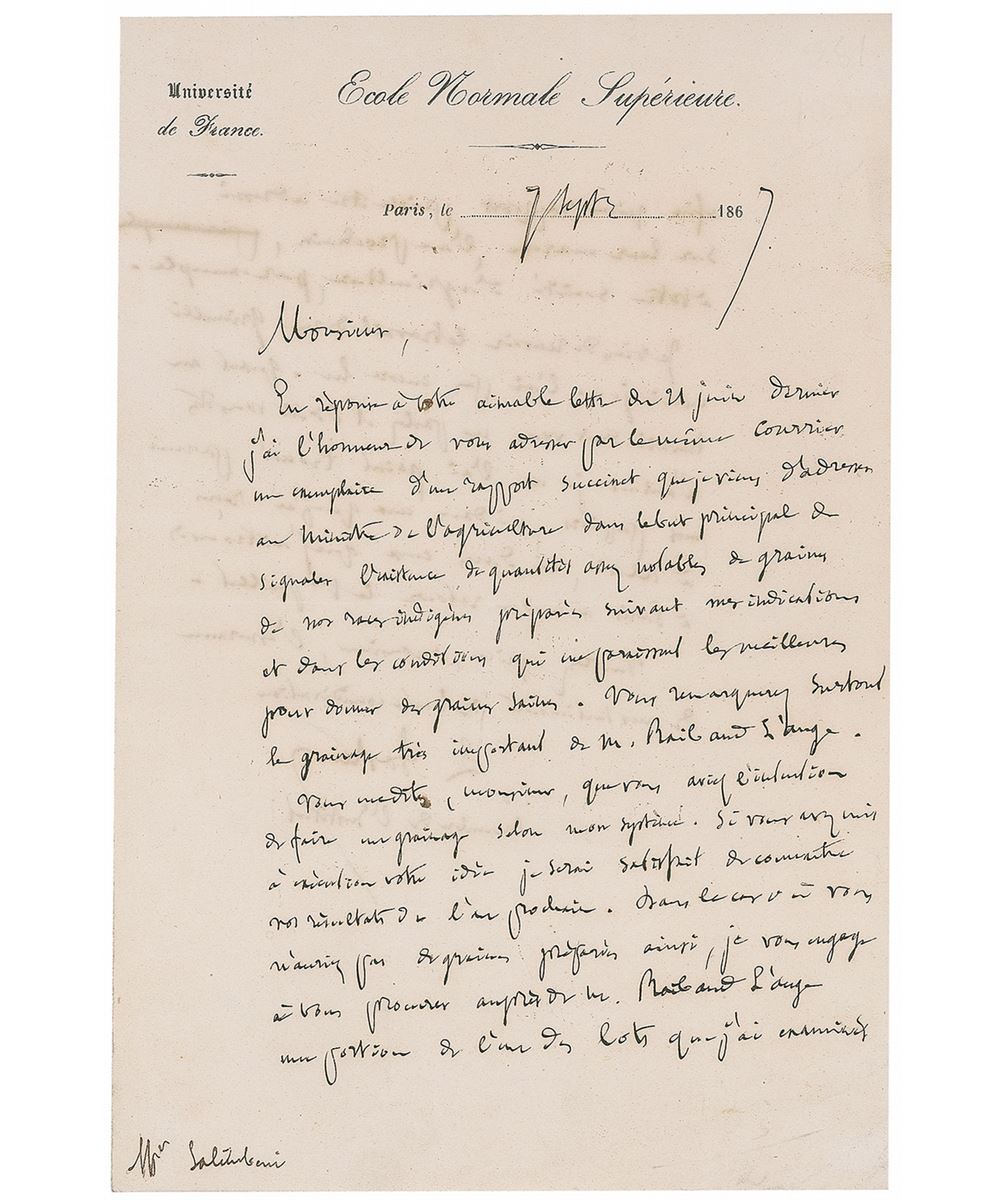 Université
de France.
Ecole Normale Supérieure.
Paris, le 7 Septbre 1867
Monsieur,
En réponse à votre aimable lettre du 21 juin dernier
j'ai l'honneur de vous adresser par le même courrier
un exemplaire d'un rapport succinct que je viens d'adresser
au Ministre de l'agriculture dans le but principal de
signaler l'existence de quantités assez notables de graines
de nos races indigènes préparées suivant mes indications
et dans les conditions qui me paraissent les meilleures
pour donner des graines saines. Vous remarquerez surtout
le grainage très important de M. Raibaud L'ange.
Vous me dites, monsieur, que vous aviez l'intention
de faire un grainage selon mon système. Si vous avez mis
à exécution votre idée je serai satisfait de connaître
vos résultats de l'an prochain. Dans le cas où vous
n'auriez pas de graines préparées ainsi, je vous engage
à vous procurer auprès de M. Raibaud L'ange
une portion de l'un des lots que j'ai examinés
Mr Salimbeni